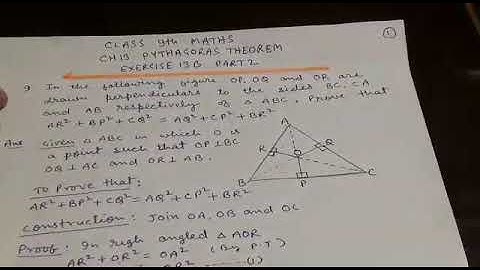 1
CLASS 9th MATHS
CH13 PYTHAGORAS THEOREM
EXERCISE 13B PART.2
9 In the following figure OP, OQ and OR are
drawn perpendiculars to the sides BC, CA
and AB respectively of Δ ABC. Prove that
AR² + BP² + CQ² = AQ² + CP² + BR²
Ans Given Δ ABC in which O is
a point such that OP⊥BC
OQ ⊥ AC and OR ⊥ AB.
A
R
Q
O
B
P
C
To Prove that:
AR² + BP² + CQ² = AQ² + CP² + BR²
Construction: Join OA, OB and OC
Proof: In righ angled Δ AOR
AR² + OR² = OA² (By P.T)
(1)